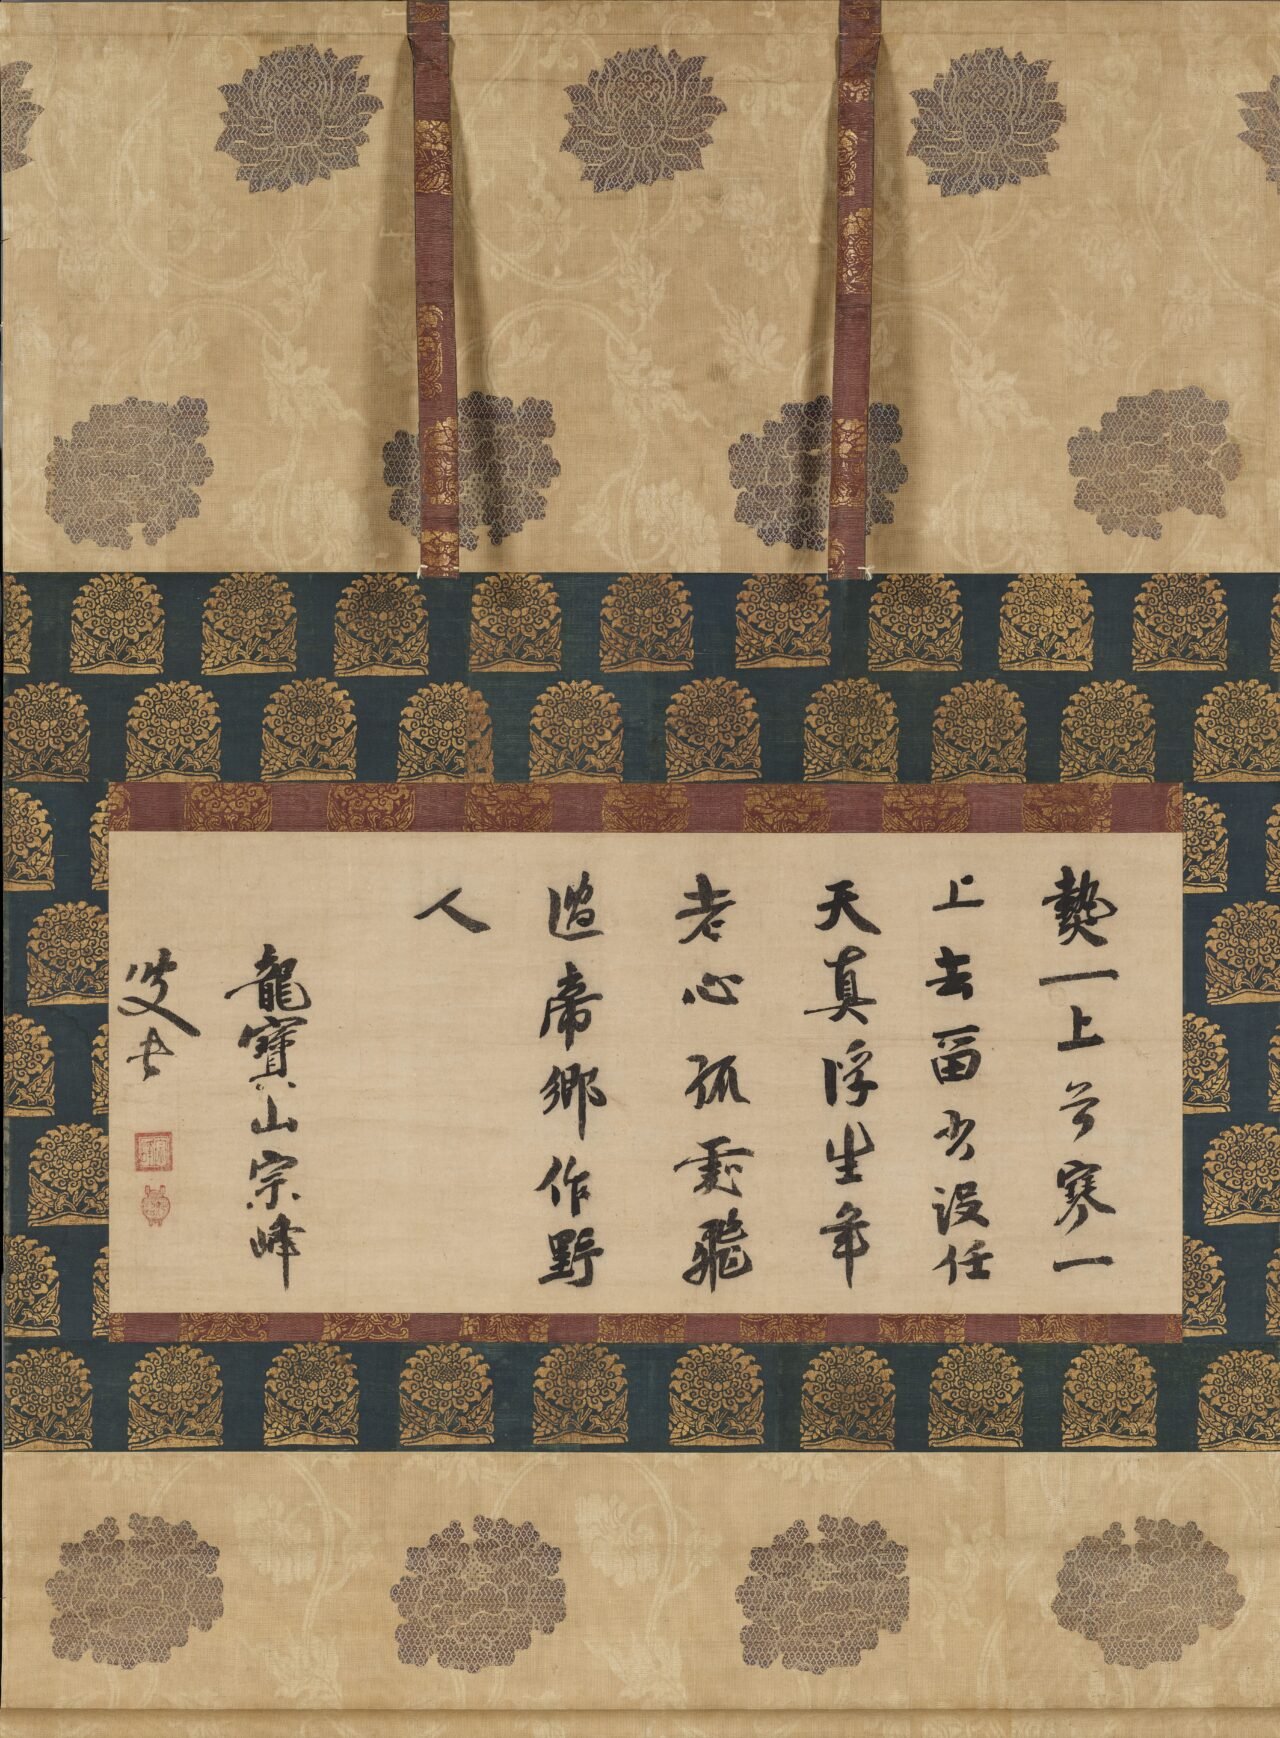 熱一上兮寒一
上去留少没任
天真浮生年
老心孤雲飛
過帝郷作野
人
龍寶山宗峰
叟書